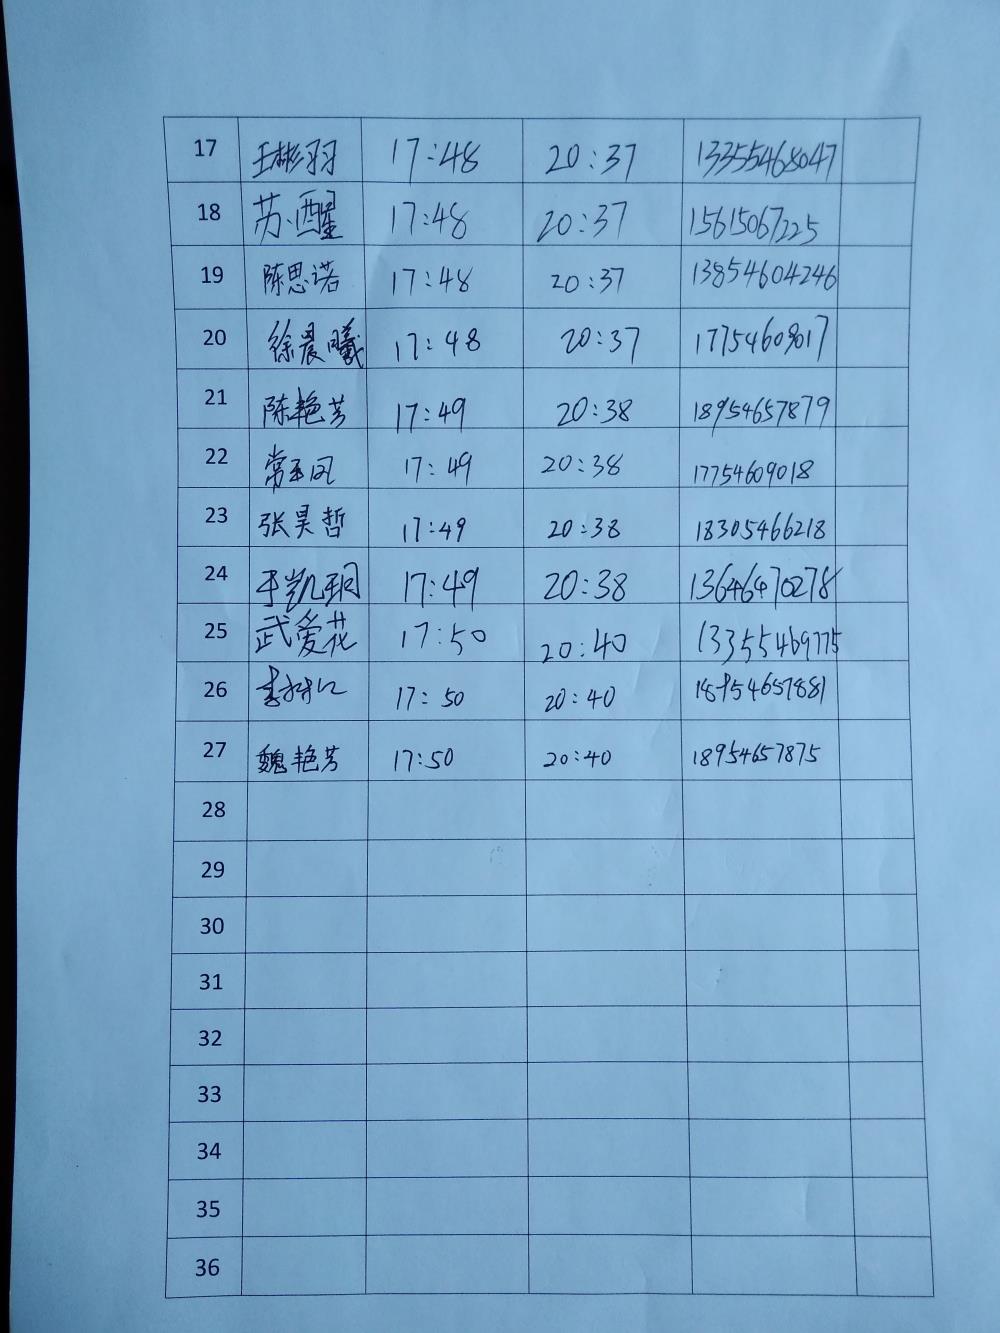 17 王彬羽 17:48 20:37 13355468047
18 苏醒 17:48 20:37 15615067225
19 陈思诺 17:48 20:37 13854604246
20 徐晨曦 17:48 20:37 17754609017
21 陈艳芳 17:49 20:38 18954657879
22 常玉凤 17:49 20:38 17754609018
23 张昊哲 17:49 20:38 18305466218
24 于凯玥 17:49 20:38 13646470278
25 武爱花 17:50 20:40 13355469775
26 17:50 20:40 18954657881
27 魏艳芳 17:50 20:40 18954657875
28
29
30
31
32
33
34
35
36